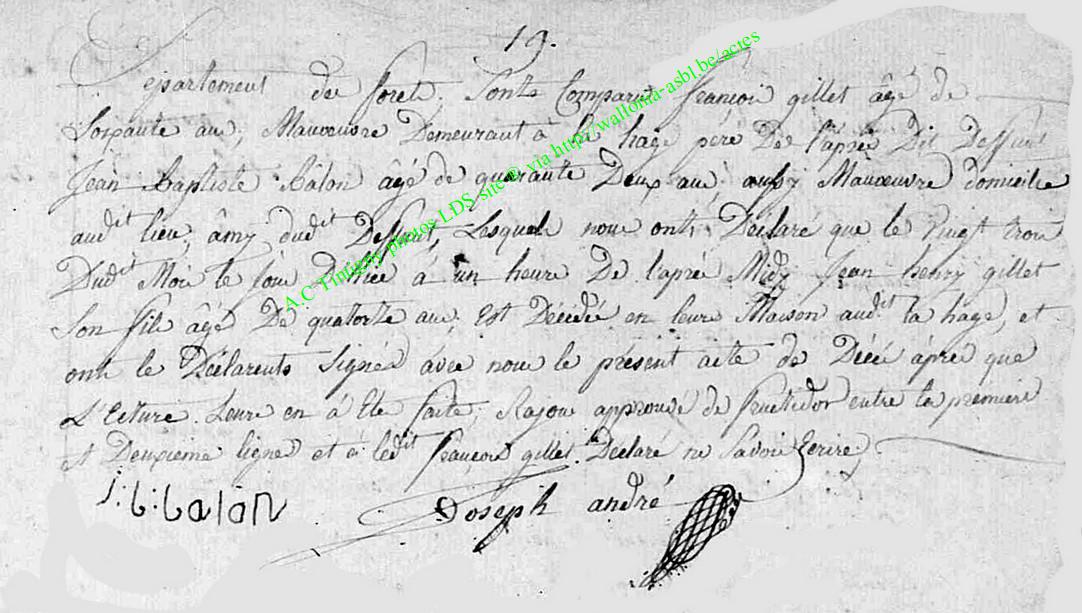 19.
Departement des forets, Sonts Comparut françois gillet âgé de
Soixante ans, Manoeuvre Demeurant à la hage père De l'après Dit Deffunt
Jean Baptiste Bâlon âgé de quarante Deux ans aussy Manoeuvre domicilie
audit lieu, âmy dudit Deffunt, Lesquels nous onts Declaré que le Vingt trois
Dudit Mois le jour D'hiée à un heure De l'après Midy Jean henry gillet
Son fils âgé De quatorze ans, Est Décédé en leure Maison audit la hage, et
onts le Déclarents Signés avec nous le présent acte de Décé âprés que
L'Ecture Leure en â Ete faite, Rajou approuvé de fructidor entre la premiere
et Deuxieme ligne et à ledit françois gillet Déclaré ne Savoir Ecrire
J:b:balon Joseph andré
A.C Tintigny photos LDS site @ via http://wallonia-asbl.be/actes